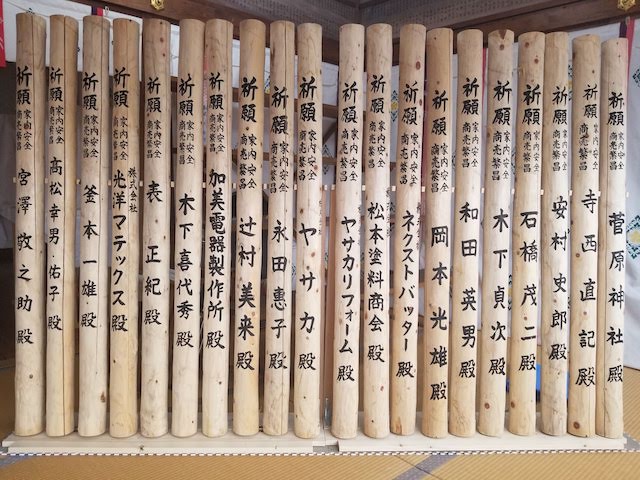 祈願 家内安全 商売繁昌 菅原神社 殿
祈願 家内安全 商売繁昌 寺西直記 殿
祈願 家内安全 商売繁昌 安村史郎 殿
祈願 家内安全 商売繁昌 石橋茂二 殿
祈願 家内安全 商売繁昌 木下貞次 殿
祈願 家内安全 商売繁昌 和田英男 殿
祈願 家内安全 商売繁昌 岡本光雄 殿
祈願 家内安全 商売繁昌 ネクストバッター 殿
祈願 家内安全 商売繁昌 松本塗料商会 殿
祈願 家内安全 商売繁昌 ヤサカリフォーム 殿
祈願 家内安全 商売繁昌 ヤサカ 殿
祈願 家内安全 商売繁昌 永田惠子 殿
祈願 家内安全 商売繁昌 辻村美来 殿
祈願 家内安全 商売繁昌 加美電器製作所 殿
祈願 家内安全 商売繁昌 木下喜代秀 殿
祈願 家内安全 商売繁昌 表正紀 殿
祈願 家内安全 商売繁昌 株式会社 光洋マテックス 殿
祈願 家内安全 商売繁昌 釜本一雄 殿
祈願 家内安全 商売繁昌 髙松幸男・佑子 殿
祈願 家内安全 商売繁昌 宮澤敦之助 殿